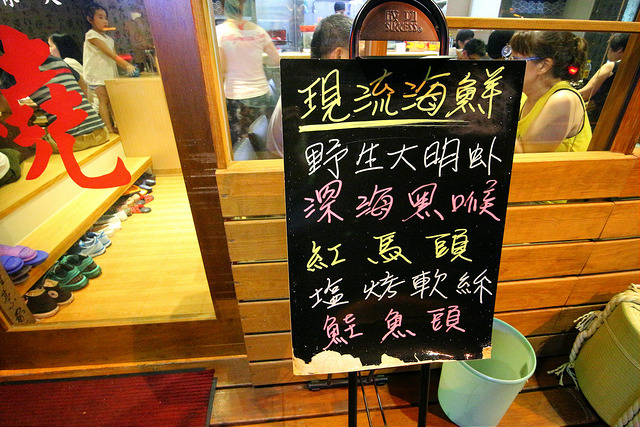 成功
SUCCESS
現流海鮮
野生大明卟
深海黑喉
紅馬頭
塩烤軟絲
鮭魚頭
燒